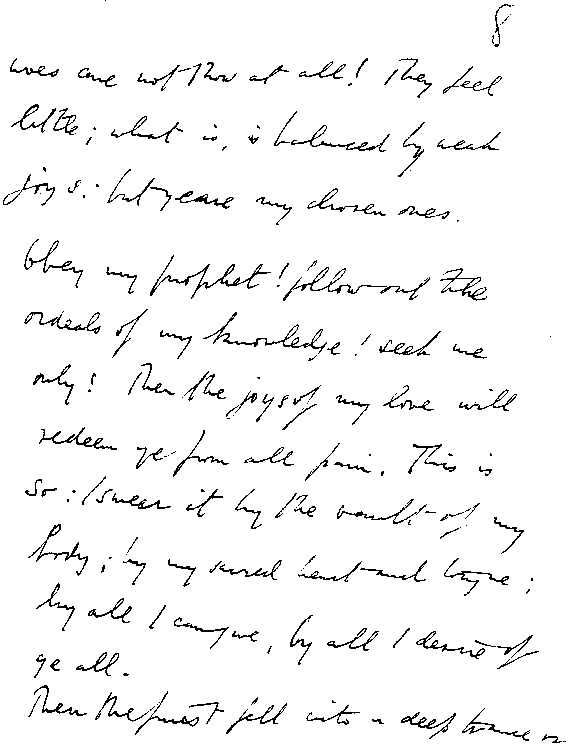 8
woes are not thou at all! They feel
little; what is, is balanced by weak
joys: but ye are my chosen ones.
Obey my prophet! follow out the
ordeals of my knowledge! seek me
only! Then the joys of my love will
redeem ye from all pain. This is
so: I swear it by the vault of my
body; by my sacred heart and tongue;
by all I can give, by all I desire of
ye all.
Then the priest fell into a deep trance or